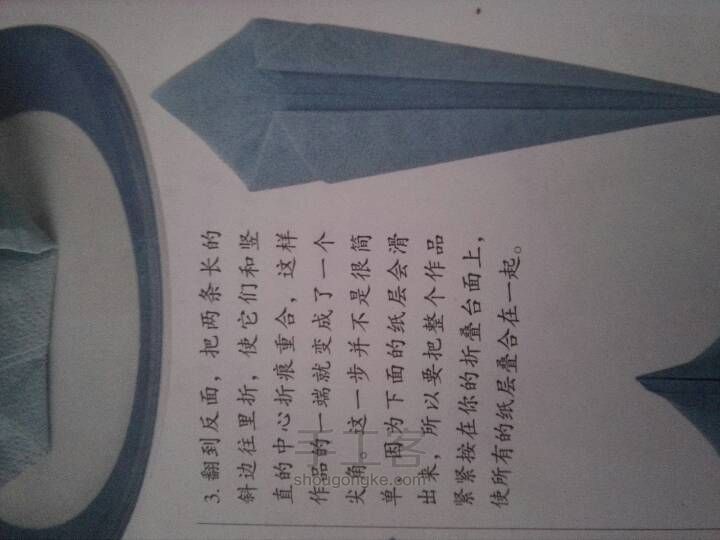 3. 翻到反面，把两条长的
斜边往里折，使它们和竖
直的中心折痕重合，这样
作品的一端就变成了一个
尖角。这一步并不是很简
单，因为下面的纸层会滑
出来，所以要把整个作品
紧紧按在你的折叠台面上，
使所有的纸层叠合在一起。
手工客
shougongke.com